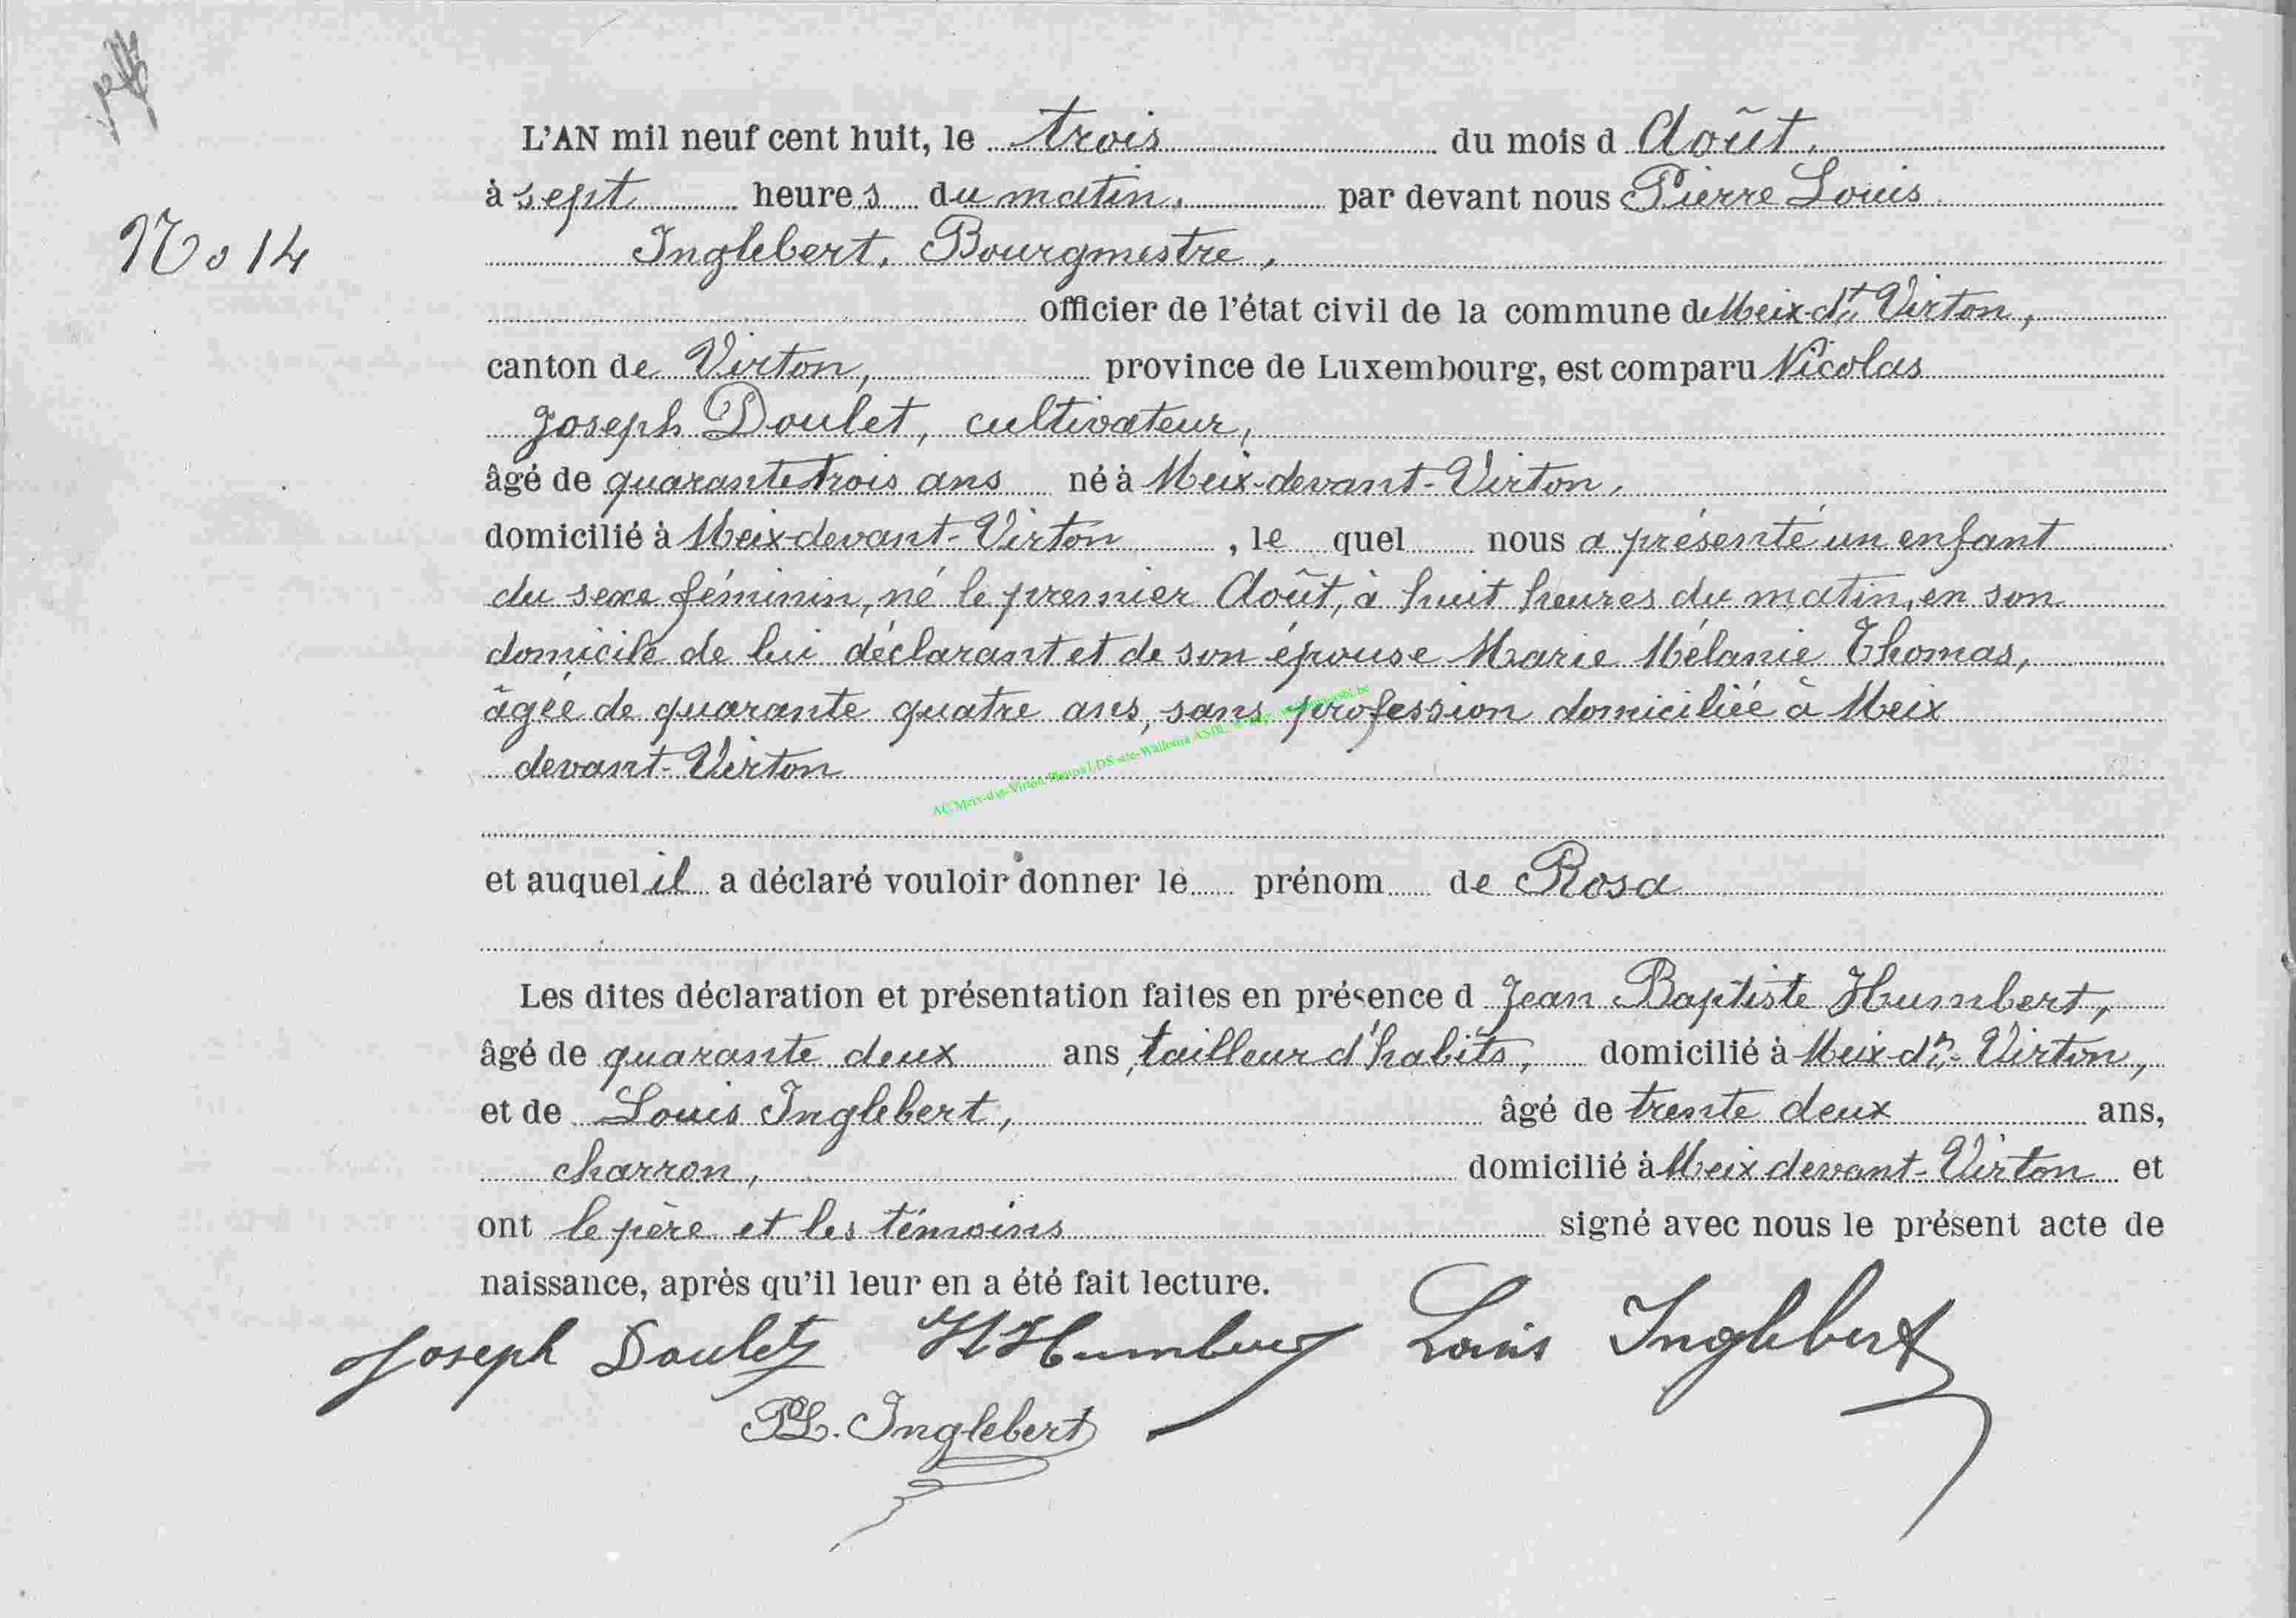 L'AN mil neuf cent huit, le trois du mois d Août,
à sept heures du matin, par devant nous Pierre Louis
No 14
Inglebert, Bourgmestre,
officier de l'état civil de la commune de Meix-dt Virton,
canton de Virton, province de Luxembourg, est comparu Nicolas
Joseph Doulet, cultivateur,
âgé de quarante trois ans né à Meix-devant-Virton,
domicilié à Meix-devant-Virton , le quel nous a présenté un enfant
du sexe féminin, né le premier Août, à huit heures du matin, en son
domicile de lui déclarant et de son épouse Marie Mélanie Thomas,
âgée de quarante quatre ans, sans profession domiciliée à Meix
devant-Virton
et auquel il a déclaré vouloir donner le prénom de Rosa
Les dites déclaration et présentation faites en présence d Jean Baptiste Humbert,
âgé de quarante deux ans, tailleur d'habits, domicilié à Meix-dt-Virton,
et de Louis Inglebert, âgé de trente deux ans,
charron, domicilié à Meix devant-Virton et
ont le père et les témoins signé avec nous le présent acte de
naissance, après qu'il leur en a été fait lecture.
Joseph Doulet Humbert Louis Inglebert
PL. Inglebert